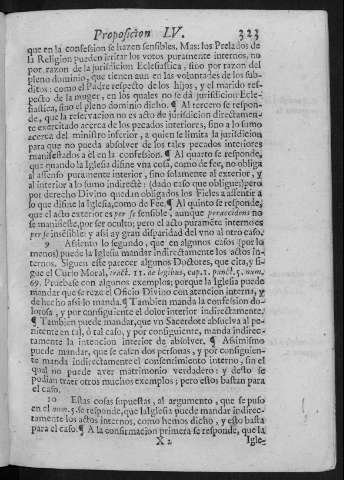 Proposicion LV. 323
que en la confession se hazen sensibles. Mas: los Prelados de
la Religion pueden irritar los votos puramente internos, no
por razon de la jurisdicion Eclesiastica, sino por razon del
pleno dominio, que tienen aun en las voluntades de los sub-
ditos: como el Padre respecto de los hijos, y el marido res-
pecto de la muger, en los quales no se dá jurisdicion Ecle-
siastica, sino el pleno dominio dicho. ¶ Al tercero se respon-
de, que la reservacion no es acto de jurisdicion directamen-
te exercitado acerca de los pecados interiores, sino a lo sumo
acerca del ministro inferior, a quien se limita la jurisdicion
para que no pueda absolver de los tales pecados interiores
manifestados a él en la confession. ¶ Al quarto se responde,
que quando la Iglesia difine vna cosa, como de fee, no obliga
al assenso puramente interior, sino solamente al exterior, y
al interior a lo sumo indirectè: (dado caso que obligue)pero
por derecho Divino quedan obligados los Fieles a assentir a
lo que difine la Iglesia, como de Fee. ¶ Al quinto se responde,
que el acto exterior es per se sensible, aunque peraccidens no
se manifieste, por ser oculto; pero el acto puramēte interno es
per se insesible: y assi ay gran disparidad del vno al otro caso.
9 Assiento lo segundo, que en algunos casos (por lo
menos) puede la Iglesia mandar indirectamente los actos in-
ternos. Siguen esse parecer algunos Doctores, que cita, y si-
gue el Curso Moral, tract. 11. de legibus, cap. 1. punct. 5. num.
69. Pruebase con algunos exemplos; porque la Iglesia puede
mandar que se reze el Oficio Divino con atencion interna, y
de hecho assi lo manda. ¶ Tambien manda la confession do-
lorosa, y por consiguiente el dolor interior indirectamente.
¶ Tambien puede mandar, que vn Sacerdote absuelva al pe-
nitente en tal, ò tal caso, y por consiguiente, manda indirec-
tamente la intencion interior de absolver. ¶ Assimismo
puede mandar, que se casen dos personas, y por consiguien-
te manda indirectamente el consentimiento interno, sin el
qual no puede aver matrimonio verdadero: y desto se
podian traer otros muchos exemplos; pero estos bastan para
el caso.
10 Estas cosas supuestas, al argumento, que se puso
en el num. 5. se responde, que la Iglesia puede mandar indirec-
tamente los actos internos, como hemos dicho, y esto basta
para el caso. ¶ A la confirmacion primera se responde, que la
X 2 Igle-